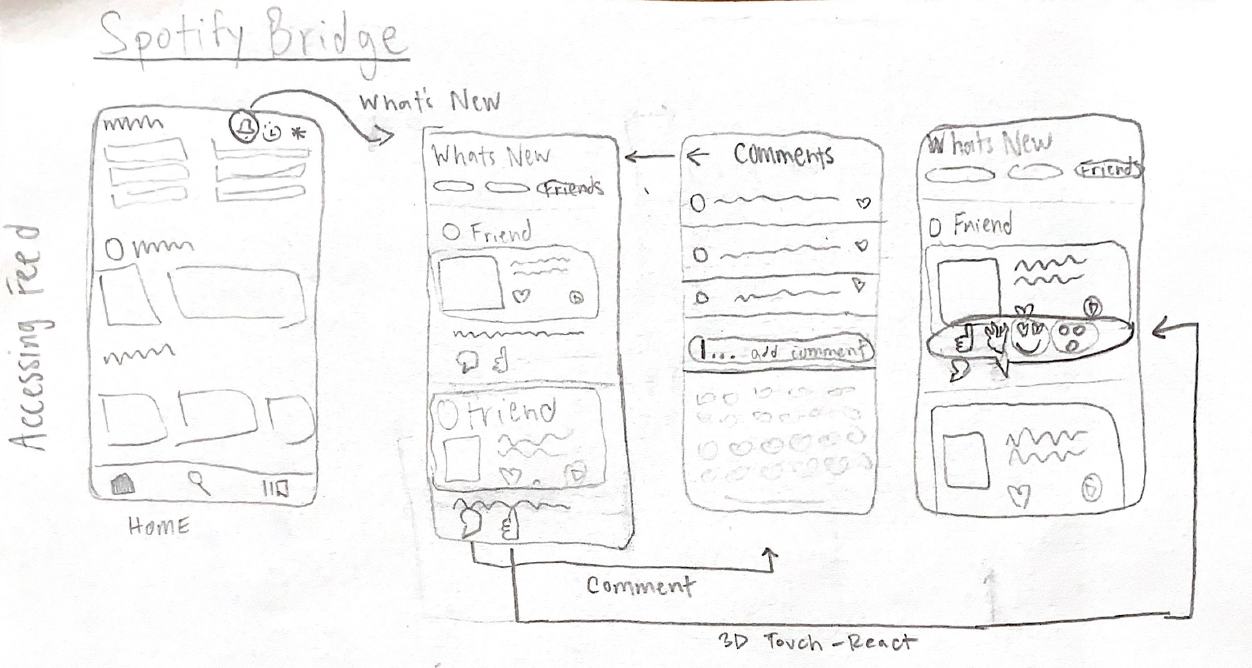 Spotify Bridge
Accessing Feed
HOME
What's New
Whats New
Friends
Friend
Friend
Comments
... add comment
Whats New
Friends
Friend
Comment
3D Touch - React